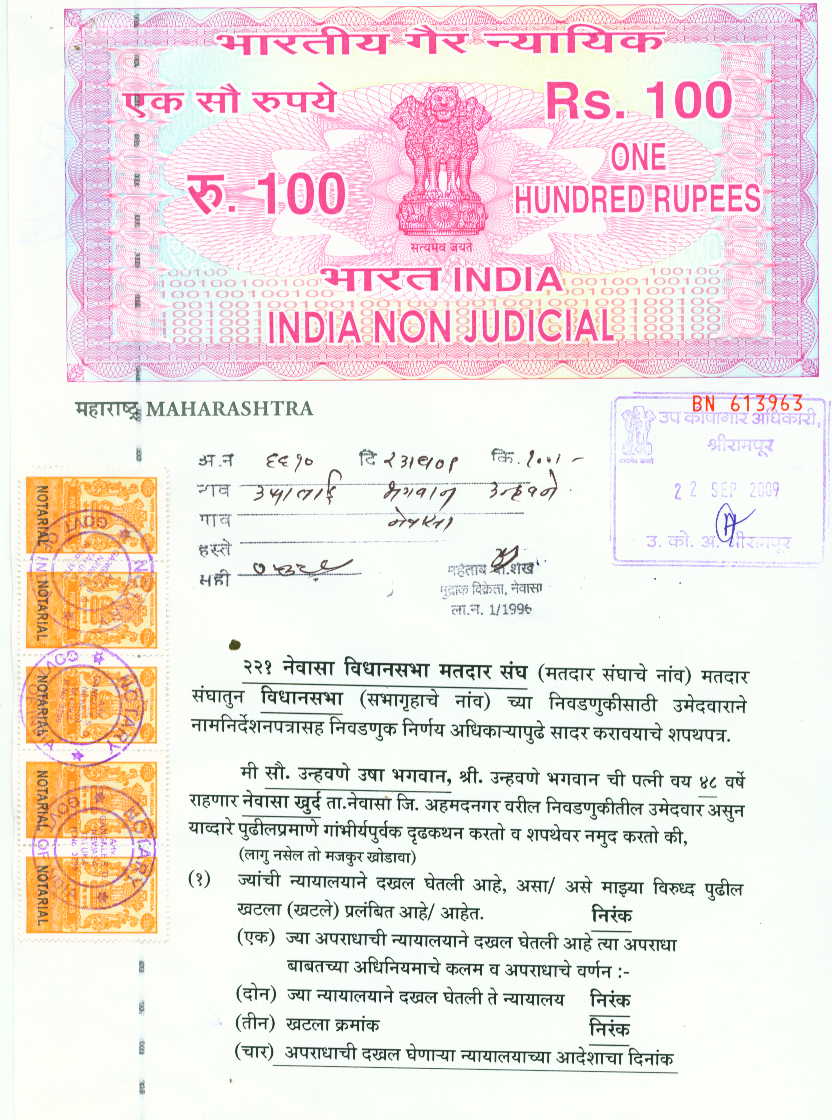 भारतीय गैर न्यायिक
एक सौ रुपये
Rs. 100
रु. 100
ONE
HUNDRED RUPEES
सत्यमेव जयते
भारत INDIA
INDIA NON JUDICIAL
महाराष्ट्र MAHARASHTRA
BN 613963
उप कोषागार अधिकारी,
श्रीरामपूर
22 SEP 2009
उ. को. अ. श्रीरामपूर
अ.न ६६१० दि कि. १००/-
नाव उषाताई भगवान उन्हवने
गाव नेवासा
हस्ते
सही
महेताब शेख
मुद्रांक विक्रेता, नेवासा
ला.न. 1/1996
NOTARIAL
NOTARIAL
NOTARIAL
NOTARIAL
NOTARIAL
NOTARY
NOTARY
२२१ नेवासा विधानसभा मतदार संघ (मतदार संघाचे नांव) मतदार
संघातुन विधानसभा (सभागृहाचे नांव) च्या निवडणुकीसाठी उमेदवाराने
नामनिर्देशनपत्रासह निवडणुक निर्णय अधिकाऱ्यापुढे सादर करावयाचे शपथपत्र.
मी सौ. उन्हवणे उषा भगवान, श्री. उन्हवणे भगवान ची पत्नी वय ४८ वर्षे
राहणार नेवासा खुर्द ता.नेवासा जि. अहमदनगर वरील निवडणुकीतील उमेदवार असुन
याव्दारे पुढीलप्रमाणे गांभीर्यपुर्वक दृढकथन करतो व शपथेवर नमुद करतो की,
(लागु नसेल तो मजकुर खोडावा)
(१) ज्यांची न्यायालयाने दखल घेतली आहे, असा/ असे माझ्या विरुध्द पुढील
खटला (खटले) प्रलंबित आहे/ आहेत. निरंक
(एक) ज्या अपराधाची न्यायालयाने दखल घेतली आहे त्या अपराधा
बाबतच्या अधिनियमाचे कलम व अपराधाचे वर्णन :-
(दोन) ज्या न्यायालयाने दखल घेतली ते न्यायालय निरंक
(तीन) खटला क्रमांक निरंक
(चार) अपराधाची दखल घेणाऱ्या न्यायालयाच्या आदेशाचा दिनांक